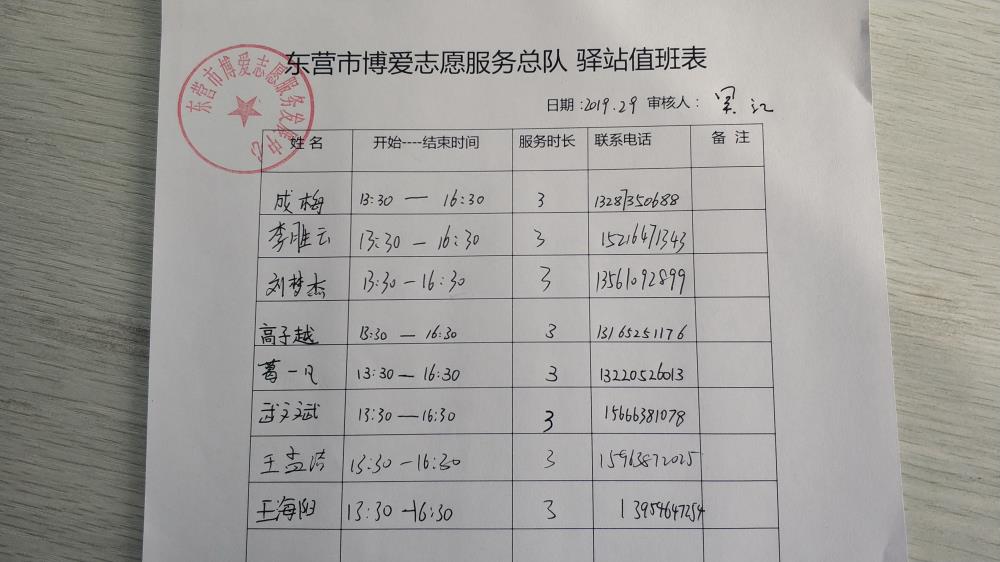 东营市博爱志愿服务总队 驿站值班表
东营市博爱志愿服务发展中心
日期:2019.2.9 审核人:
姓名 开始----结束时间 服务时长 联系电话 备 注
成梅 13:30 — 16:30 3 13287350688
李胜云 13:30 — 16:30 3 15216471343
刘梦杰 13:30 — 16:30 3 13561092899
高子越 13:30 — 16:30 3 13165251176
葛一凡 13:30 — 16:30 3 13220526013
武文斌 13:30 — 16:30 3 15666381078
王孟洁 13:30 — 16:30 3 15963872025
王海阳 13:30 — 16:30 3 13954647254